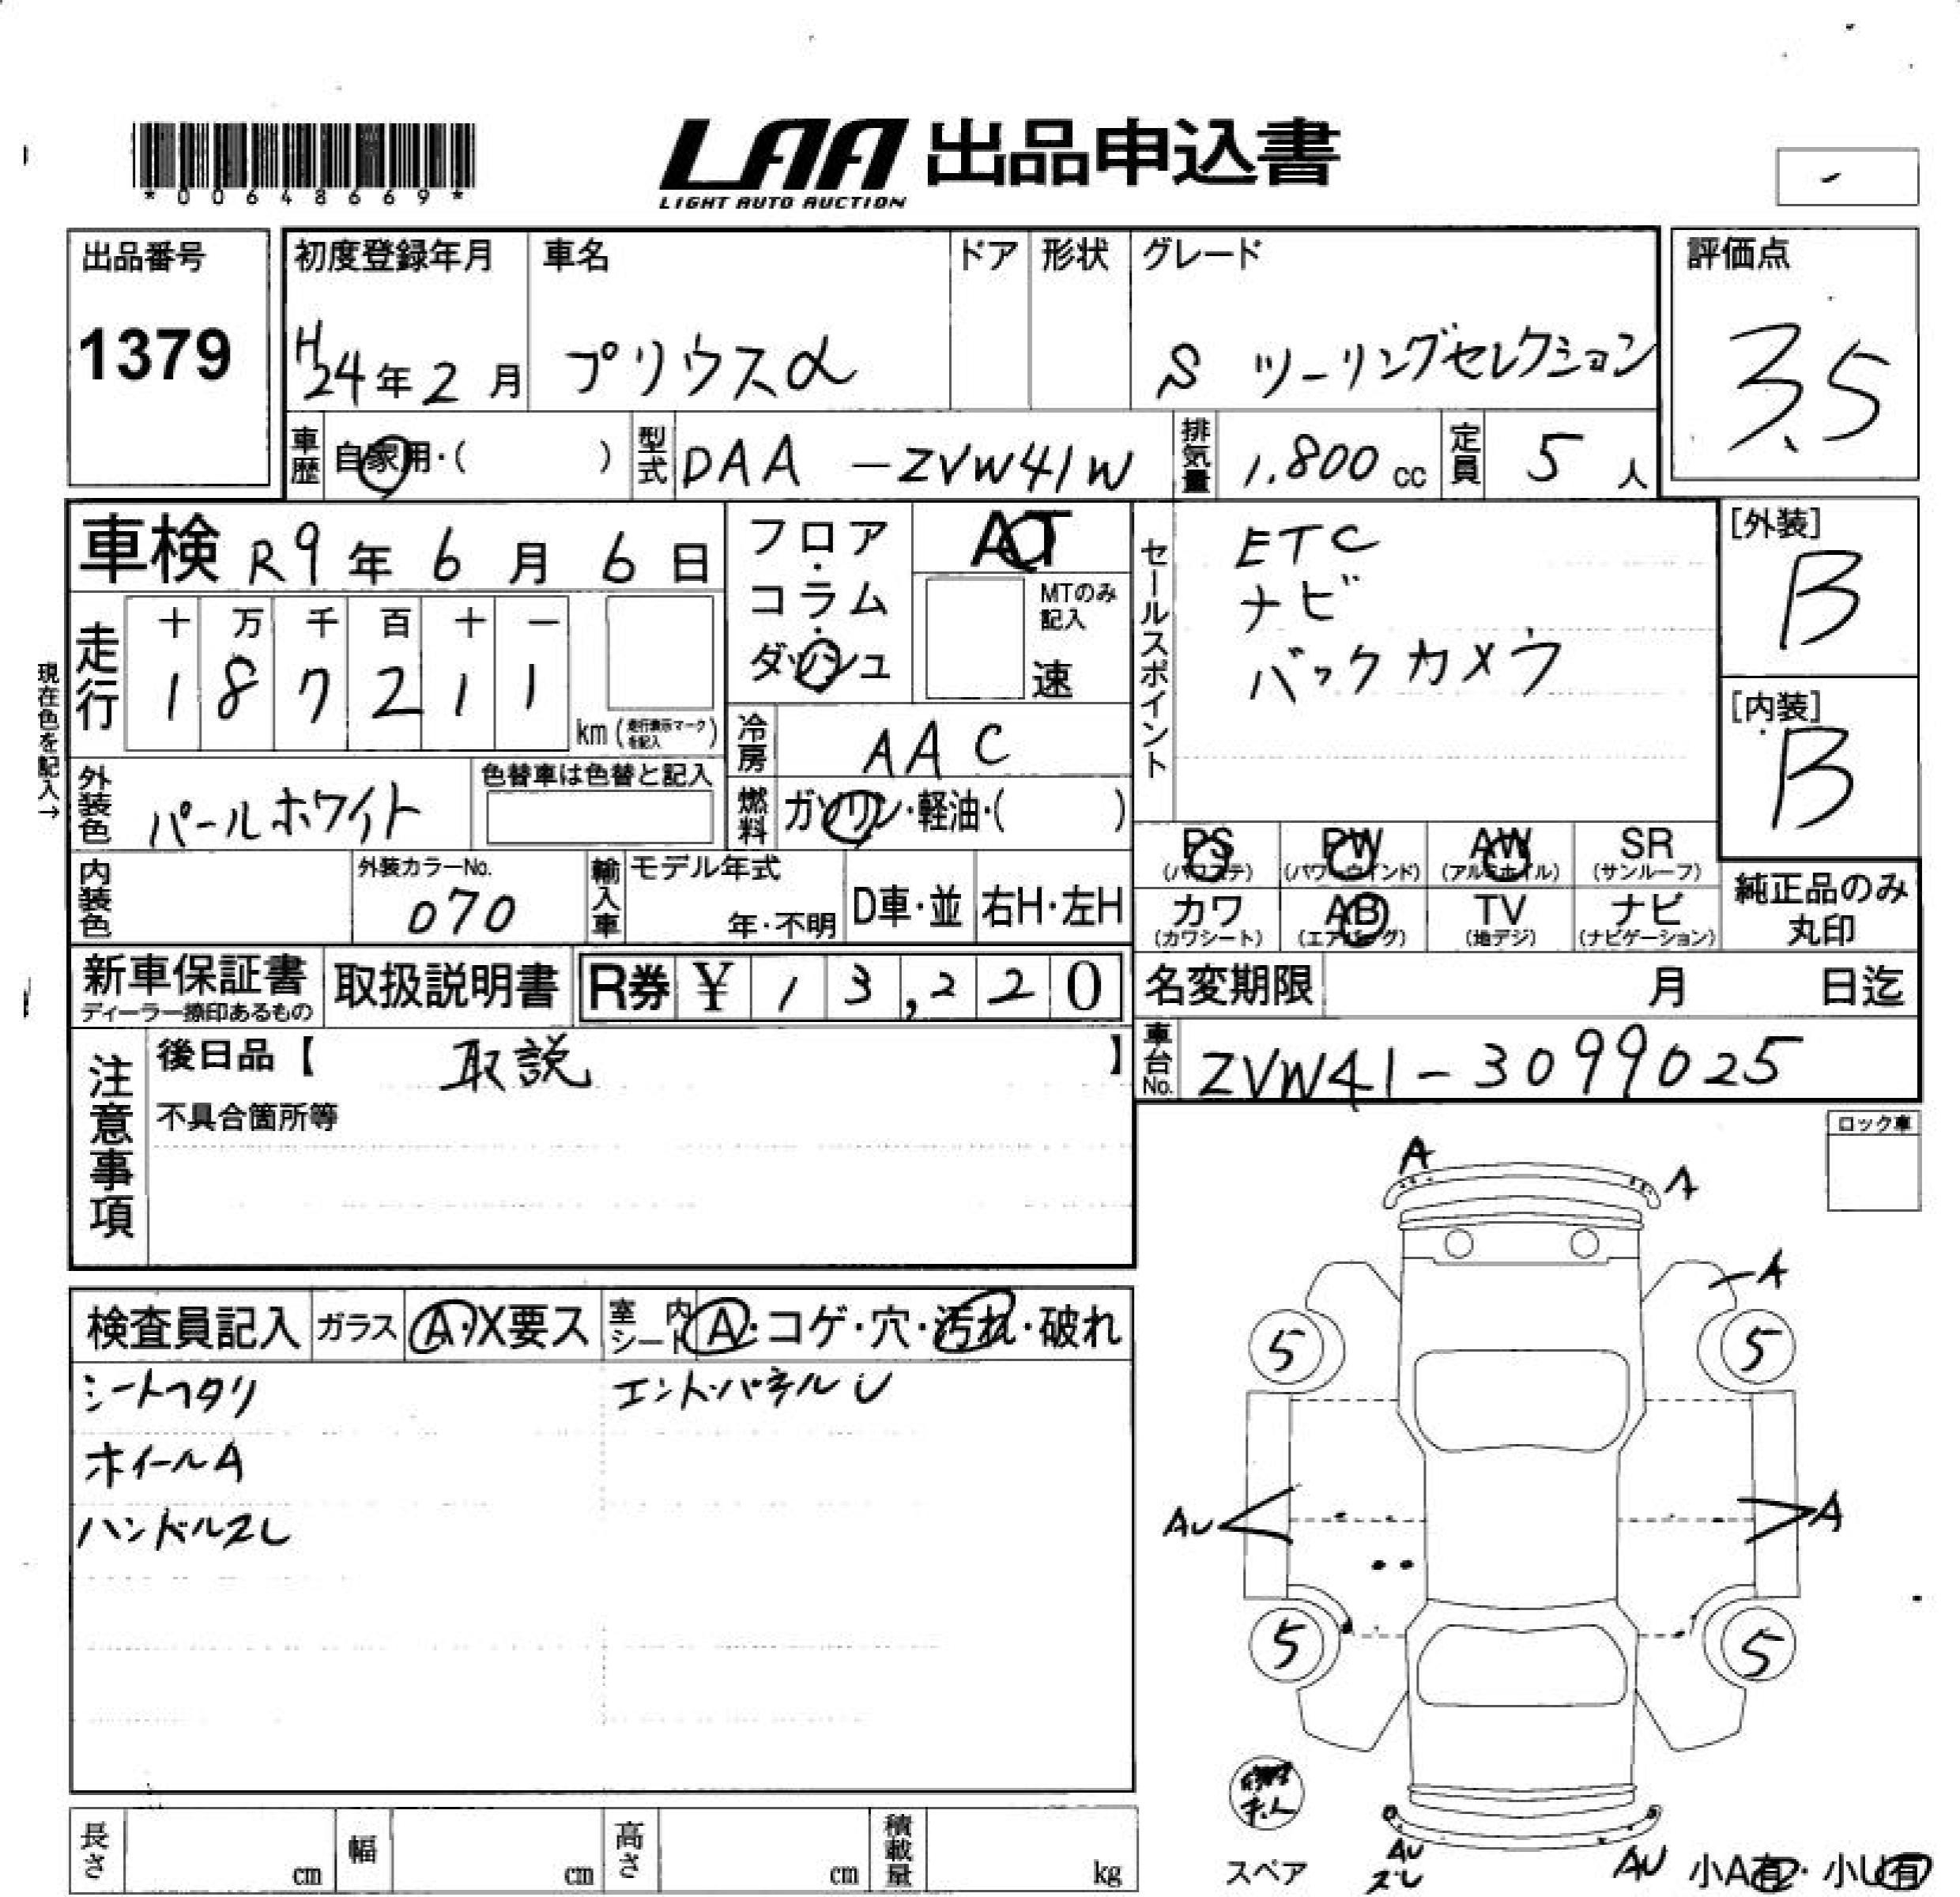 *00648669*
LAA 出品申込書
LIGHT AUTO AUCTION
出品番号
1379
初度登録年月
H24年2月
車名
プリウスα
ドア
形状
グレード
S ツーリングセレクション
評価点
3.5
車歴
自家用・( )
型式
DAA -ZVW41W
排気量
1,800cc
定員
5人
車検 R9年6月6日
フロア・コラム・ダッシュ
AT
MTのみ記入
速
セールスポイント
ETC
ナビ
バックカメラ
[外装]
B
[内装]
B
現在色を記入→
走行
十 万 千 百 十 一
1 8 7 2 1 1
km(走行表示マークを記入)
冷房
AAC
外装色
パールホワイト
色替車は色替と記入
燃料
ガソリン・軽油・( )
PS
(パワステ)
PW
(パワーウインド)
AW
(アルミホイル)
SR
(サンルーフ)
カワ
(カワシート)
AB
(エアバッグ)
TV
(地デジ)
ナビ
(ナビゲーション)
純正品のみ
丸印
内装色
外装カラーNo.
070
輸入車
モデル年式
年・不明
D車・並
右H・左H
新車保証書
ディーラー捺印あるもの
取扱説明書
R券 ¥13,220
名変期限 月 日迄
注意事項
後日品【 取説 】
不具合箇所等
車台No.
ZVW41-3099025
ロック車
検査員記入
ガラス
A・X要ス
室内シート
A・コゲ・穴・汚れ・破れ
シートヘタリ
エントパネルU
ホイールA
ハンドルスレ
A
A
A
5
5
AU
A
5
5
スペア
AU
ズレ
AU
小A有・小U有
長さ cm
幅 cm
高さ cm
積載量 kg